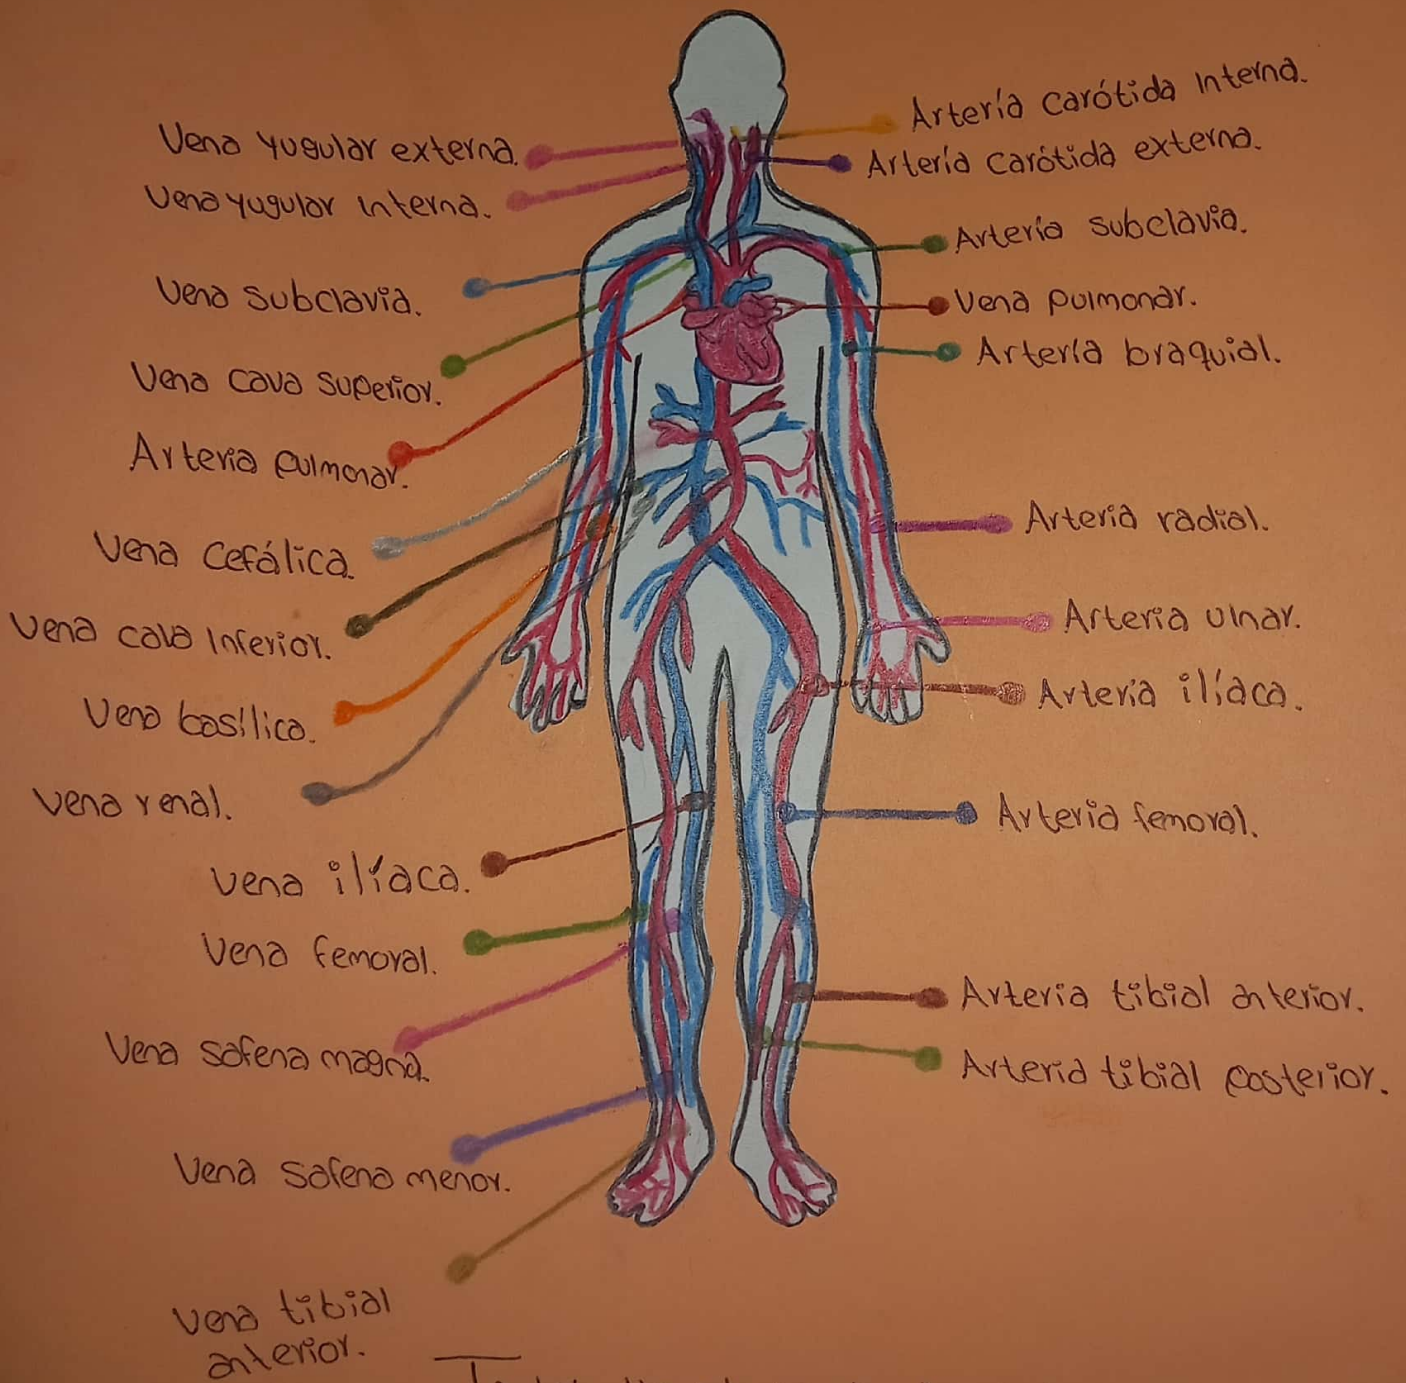 Vena yugular externa.
Vena yugular interna.
Vena subclavia.
Vena cava superior.
Arteria pulmonar.
Vena cefálica.
Vena cava inferior.
Vena basílica.
Vena renal.
Vena ilíaca.
Vena femoral.
Vena safena magna.
Vena safena menor.
Vena tibial
anterior.
Artería carótida interna.
Artería carótida externa.
Artería subclavia.
Vena pulmonar.
Artería braquial.
Arteria radial.
Arteria ulnar.
Artería ilíaca.
Arteria femoral.
Arteria tibial anterior.
Arteria tibial posterior.